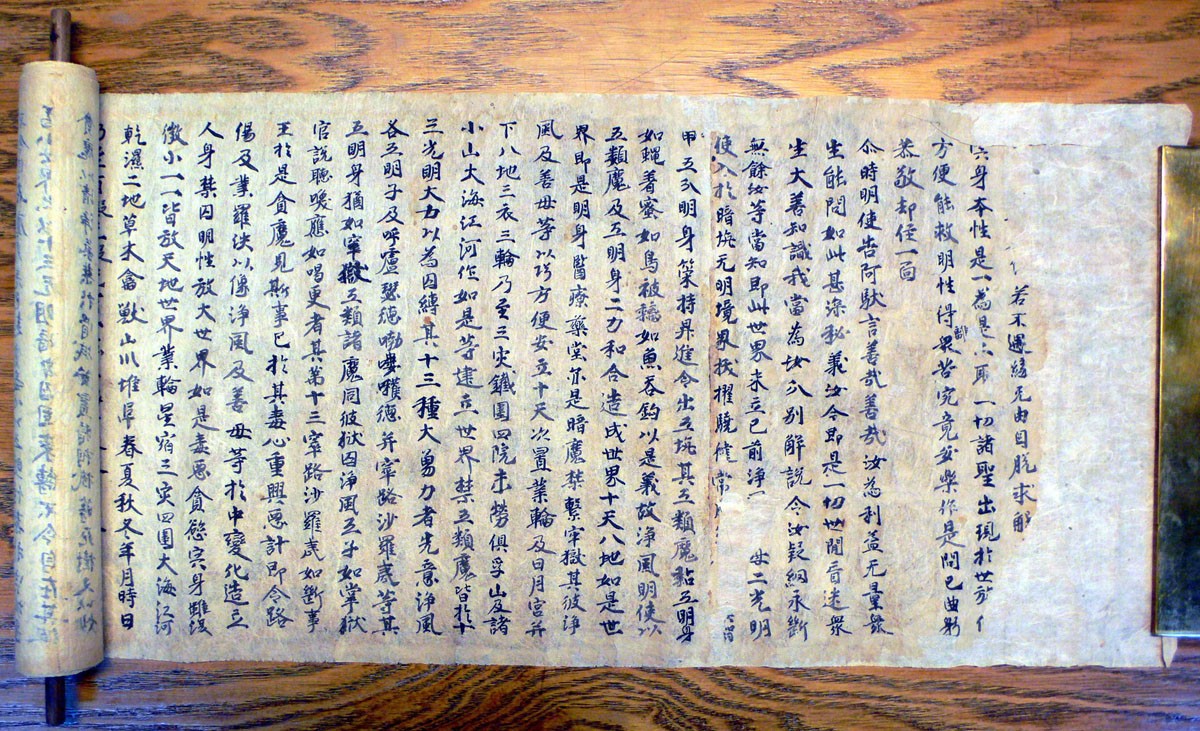 若不遇緣无由自脫求解
宍身本性是一為是二耶一切諸聖出現於世施作
方便能救明性得離眾苦究竟安樂作是問已曲躬
恭敬却住一面
尒時明使告阿馱言善哉善哉汝為利益无量眾
生能問如此甚深秘義汝今即是一切世間盲迷眾
生大善知識我當為汝分別解說令汝疑網永斷
無餘汝等當知即此世界未立已前淨 母二光明
使入於暗坑无明境界拔擢驍健常
甲五分明身策持昇進令出五坑其五類魔黏五明身
如蠅著蜜如鳥被黐如魚吞鈎以是義故淨風明使以
五類魔及五明身二力和合造成世界十天八地如是世
界即是明身醫療藥堂亦是暗魔禁繫牢獄其彼淨
風及善母等以巧方便安立十天次置業輪及日月宮并
下八地三衣三輪乃至三災鐵圍四院未勞俱孚山及諸
小山大海江河作如是等建立世界禁五類魔皆於十
三光明大力以為囚縛其十三種大勇力者先意淨風
各五明子及呼嚧瑟德嘞嘍嚄德并窣路沙羅夷等其
五明身猶如牢獄五類諸魔同彼獄囚淨風五子如掌獄
官說聽喚應如喝更者其第十三窣路沙羅夷如斷事
王於是貪魔見斯事已於其毒心重興惡計即令路
傷及業羅泱以像淨風及善母等於中變化造立
人身禁囚明性放大世界如是毒惡貪慾宍身雖復
微小一一皆放天地世界業輪星宿三災四圍大海江河
乾濕二地草木禽獸山川堆阜春夏秋冬年月時日